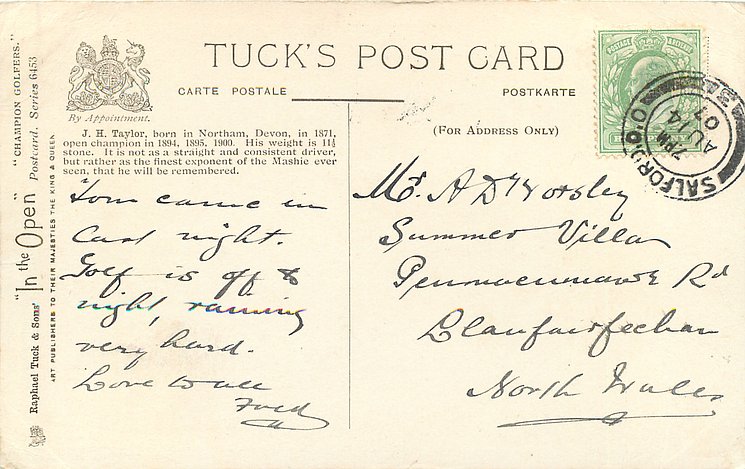 TUCK'S POST CARD
CARTE POSTALE POSTKARTE
(FOR ADDRESS ONLY)
By Appointment.
J. H. Taylor, born in Northam, Devon, in 1871,
open champion in 1894, 1895, 1900. His weight is 11½
stone. It is not as a straight and consistent driver,
but rather as the finest exponent of the Mashie ever
seen, that he will be remembered.
Tom came in
last night.
Golf is off to
night, raining
very hard.
Love to all
Fred
Mr A D Worsley
Summer Villa
Penmaenmawr Rd
Llanfairfechan
North Wales
POSTAGE & REVENUE
SALFORD
7 PM
AU 14
07
"CHAMPION GOLFERS."
"In the Open" Postcard. Series 6453
Raphael Tuck & Sons'
ART PUBLISHERS TO THEIR MAJESTIES THE KING & QUEEN